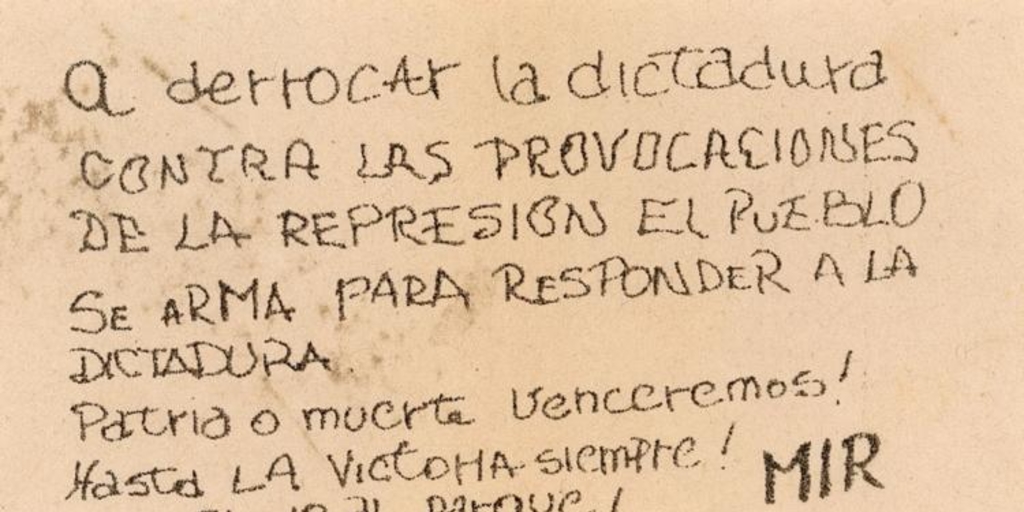 a derrocAr la dictadura
CONTRA LAS PROVOCACIONES
DE LA REPRESION EL PUEBLO
SE ARMA PARA RESPONDER A LA
DICTADURA.
Patria o muerte venceremos!
Hasta LA VictoriA siempre!
MIR